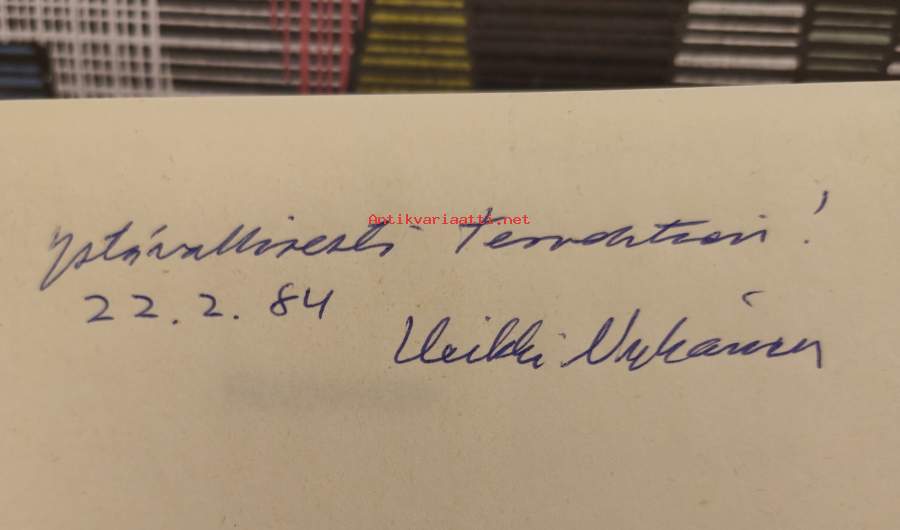 Antikvariaatti.net
Ystävällisesti Tervehtien!
22.2.84
Veikko Nykänen